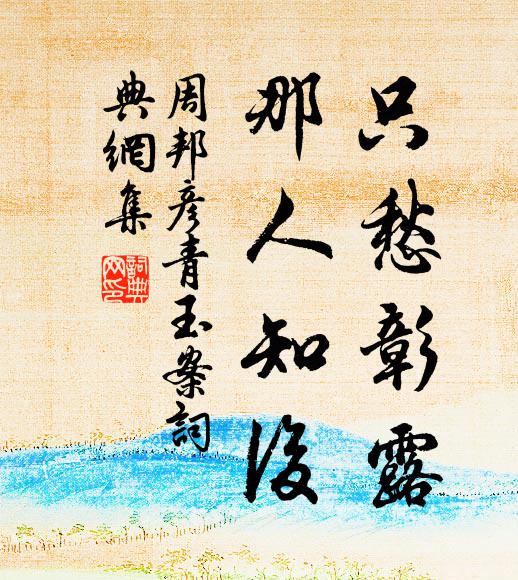 只愁彰露
那人知後
周邦彦青玉案詞
典網集
詞典
网印